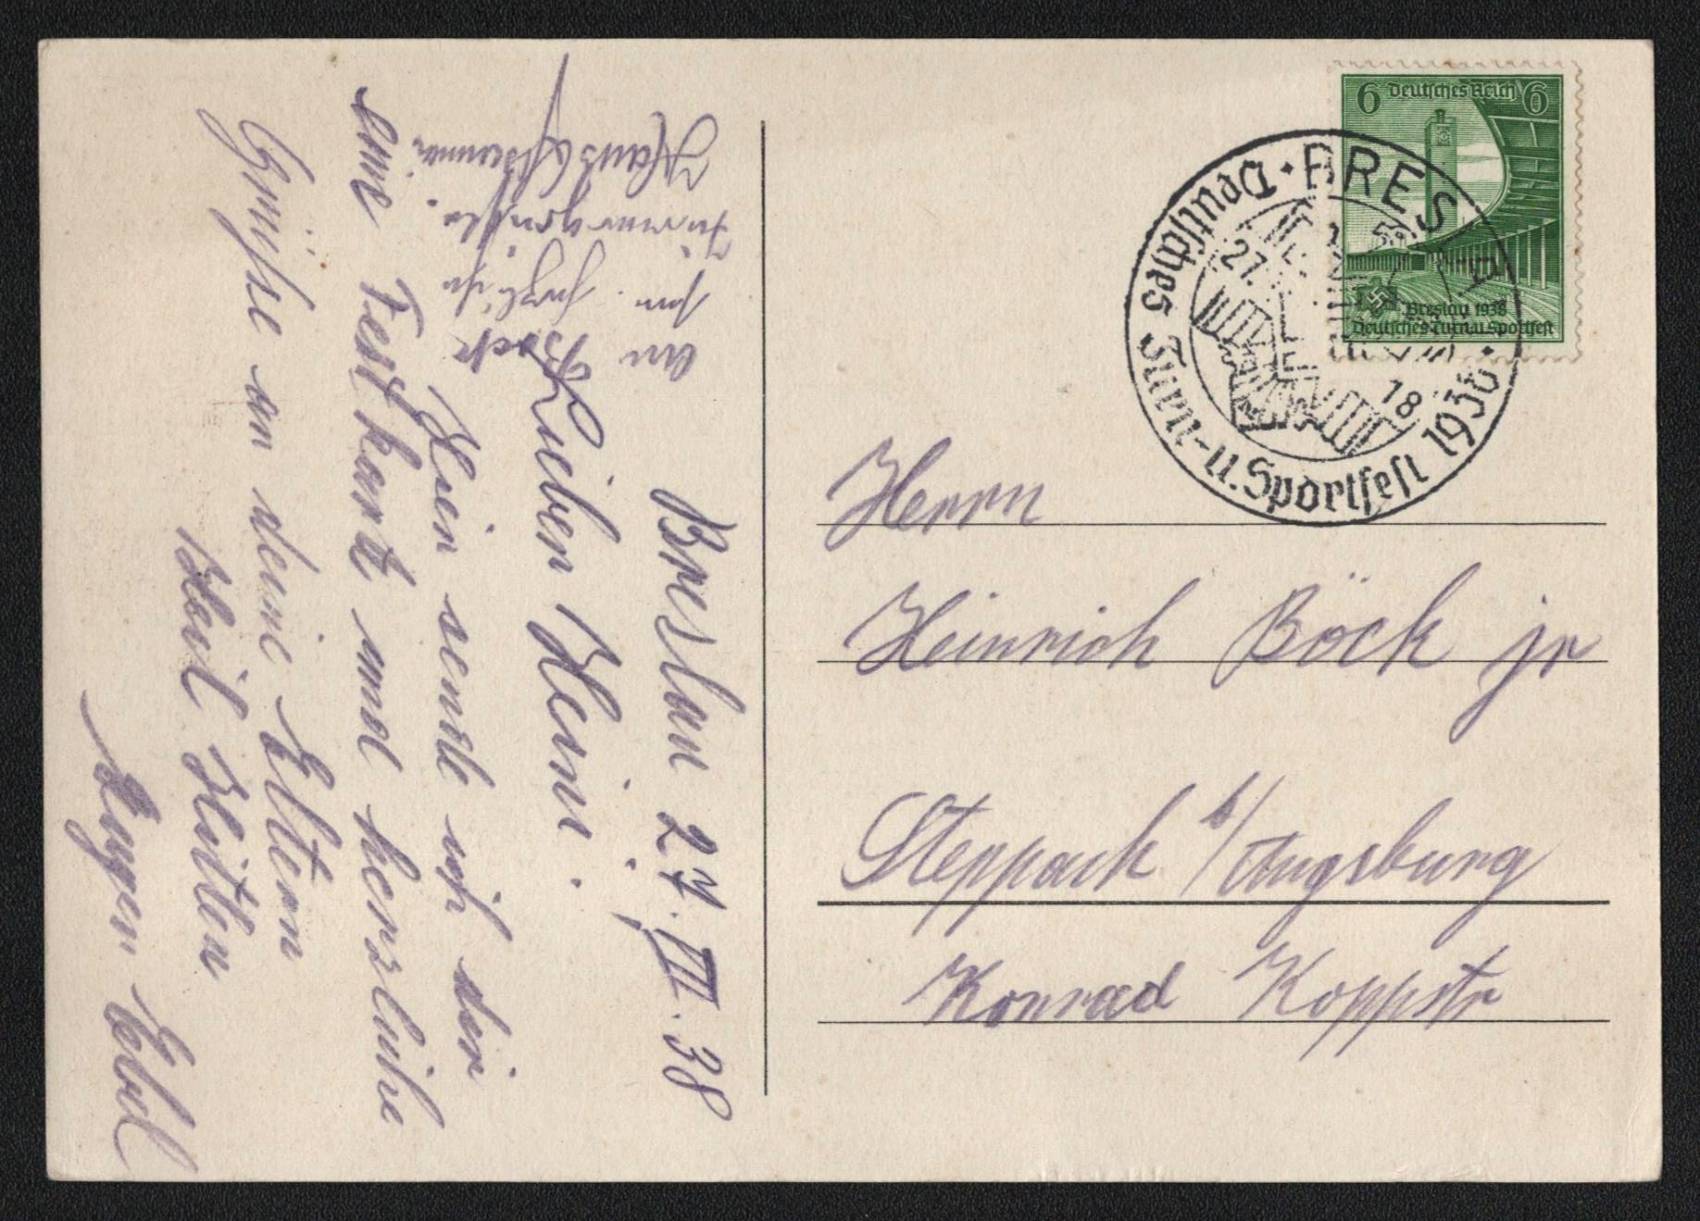 Breslau 27. VII. 38
Lieber Heini.
Hier sende ich dir
eine Festkarte und herzliche
Grüße an deine Eltern
Heil Hitler
Eugen Ebel
an Bock
Hans
Herrn
Heinrich Böck jr
Steppach b/Augsburg
Konrad Koppstr
6 Deutsches Reich 6
Breslau 1938
Deutsches Turn u Sportfest
BRESLA
Deutsches Turn- u. Sportfest 1938
27.
18